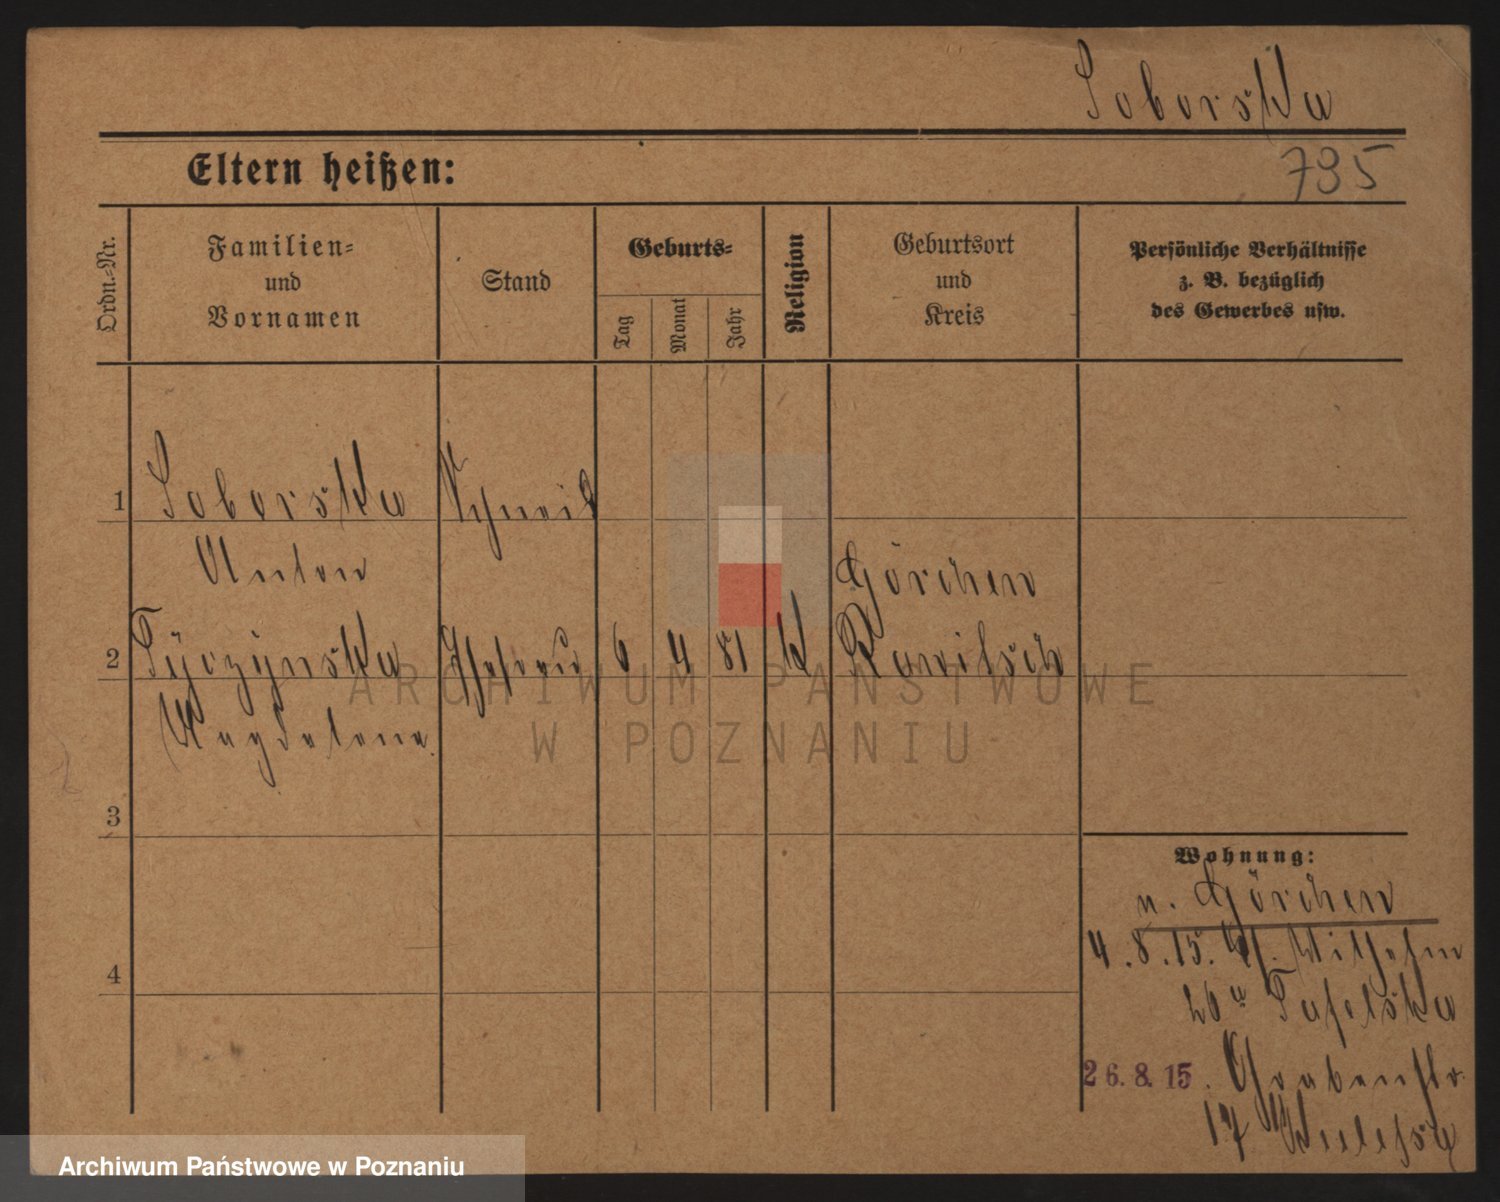 Soborska
795
Eltern heißen:
Ordn.-Nr.
Familien=
und
Vornamen
Stand
Geburts=
Tag
Monat
Jahr
Religion
Geburtsort
und
Kreis
Persönliche Verhältnisse
z. B. bezüglich
des Gewerbes usw.
1 Soborska
Anton
Görchen
2 Tyczynska Ehefrau 6 4 81 k Rawitsch
Magdalena
3
4
Wohnung:
n. Görchen
4.8.15. Wilhelm
26a Tafelska
26.8.15. Grabenstr.
17
ARCHIWUM PAŃSTWOWE
W POZNANIU
Archiwum Państwowe w Poznaniu